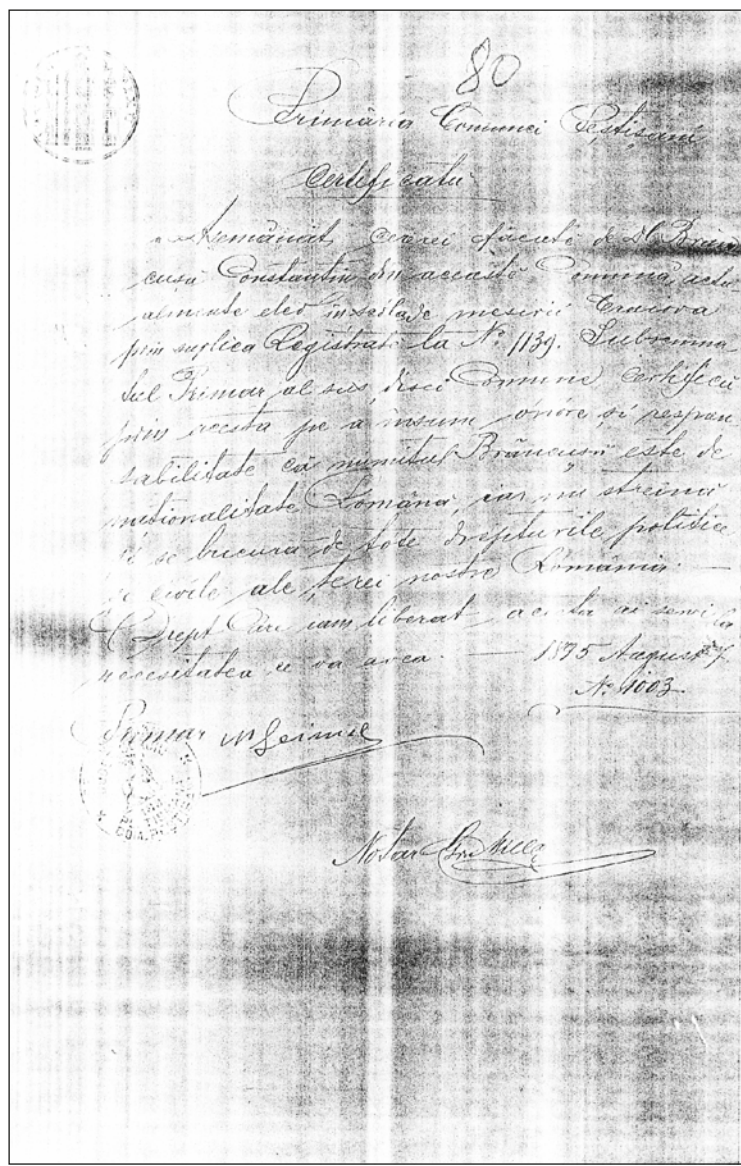 80
Primăria Comunei Peștișani
Certificatu
cererei făcută de Dl Brân
cușu Constantin din această Comună, actu
almente elev în scóla de meserii Craiova
prin suplica Registrată la N. 1139. Subsemna
tul Primar al sus disei Comune Certifică
prin acesta pe a însumi onóre și respon
sabilitate că numitul Brâncușu este de
naționalitate Română, iar nu streină
și se bucură de tóte drepturile politice
și civile ale țerei nostre România. —
Drept care iam liberat acesta a servi la
necesitatea ce va avea. — 1895 August 7
N. 1003
Primar
Notar